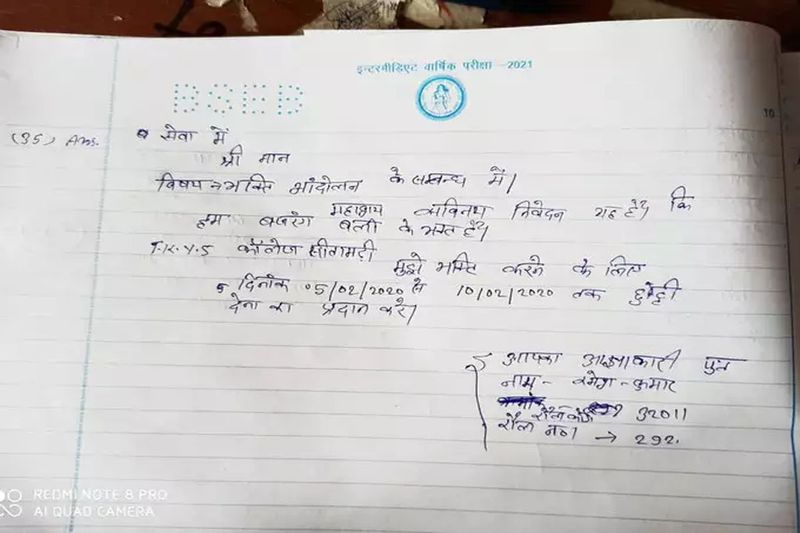 इन्टरमीडिएट वार्षिक परीक्षा -2021
BSEB
10
(35) Ans.
सेवा में
श्री मान
विषय → भक्ति आंदोलन के सम्बन्ध में।
महाशय सविनय निवेदन यह है कि
हम बजरंग बली के भक्त है।
T.R.Y.S कॉलेज सीतामढ़ी
मुझे भक्ति करने के लिए
दिनांक 05/02/2020 से 10/02/2020 तक छुट्टी
देना का प्रदान करे।
आपका आज्ञाकारी पुत्र
नाम - रमेश - कुमार
रौल कोड 32011
रौल न० → 292.
REDMI NOTE 8 PRO
AI QUAD CAMERA